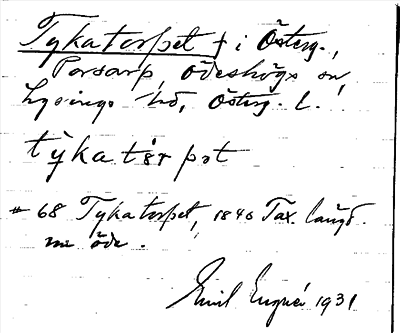 Tykatorpet † i Österg.,
Porsarp, Ödeshögs sn,
Lysings hd, Österg. L.
tỳkatɔrpət
# 68 Tykatorpet, 1840 Tax. längd.
nu öde.
Emil Engnér 1931